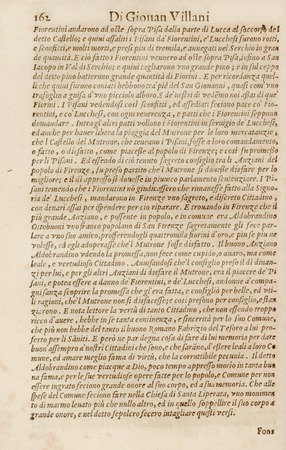 162 Di Giouan Villani
Fiorentini andarono ad oste sopra Pisa dalla parte di Lucca al soccorso del
detto Castello; e quiui assaliti i Pisani da' Fiorentini, e' Lucchesi furono rotti,
e sconfitti, e molti morti, e presi piu di tremila, e annegati nel Serchio in gran-
de quantità. E cio fatto i Fiorentini vennero ad oste sopra Pisa, insino a San
Iacopo in Val di Serchio; e quiui tagliarono vno grande pino; e in sul ceppo
del detto pino batterono grande quantità di Fiorini. E per ricordanza quel-
li che quiui furono coniati hebbono tra' piè del San Giouanni, quasi com vno
trafoglio a guisa d'vno piccolo albore. E de' nostri dì vedemmo noi assai di que'
Fiorini. I Pisani vedendosi così sconfitti, ed assediati feciono pace co' Fio-
rentini, e co' Lucchesi, con ogni reuerenza, e patti che i Fiorentini seppono
domandare. Intra gli altri patti vollono i Fiorentini in seruigio de' Lucchesi,
ed anche per hauer libera la piaggia del Mutrone per le loro mercatantie,
che'l Castello del Mutrone, che teneano i Pisani, fosse a loro comandamento,
o fatto, o disfatto, come piacesse al popolo di Firenze; e così fu promesso
per li Pisani. Ed essendo di ciò tenuto segreto consiglio tra li Anziani del
popolo di Firenze, fu preso partito che'l Mutrone si douesse disfare per lo
migliore; e il dì appresso si douesse in piuuico parlamento sentenziare. I Pi-
sani temendo che i Fiorentini no'l giudicassero che rimanesse fatto alla Signo-
ria de' Lucchesi, mandarono in Firenze vno segreto, e discreto Cittadino,
con denari assai per spendere per ciò riparare. E trouando in Firenze che il
più grande Anziano, e possente in popolo, e in comune era Aldobrandino
Ottobuoni vno franco popolano di San Firenze segretamente gli fece par-
lare a vno suo amico, profferendogli quattromila fiorini d'oro, e più se più ne
volesse, ed egli adoperasse che'l Mutrone fosse disfatto. Il buono Anziano
Aldobrandino vdendo la promessa, non fece come cupido, o auaro, ma come
leale, e vertudioso Cittadino. Auuisandosi che'l consiglio preso il dì dinan-
zi per lui, e per gli altri Anziani di disfare il Mutrone, era il piacere de' Pi-
sani, e potea essere a danno de' Fiorentini, e de' Lucchesi, andonne a' compa-
gni sanza scoprire la promessa che gli era fatta, e consigliò per belle, ed vti-
li ragioni, che'l Mutrone non si disfacesse; e così preso per consiglio, e stan-
ziarono. E nota lettore la vertù di tanto Cittadino, che non essendo troppo
ricco d'auere, hebbe in se tanta continenza, e sincerità per lo suo Comune,
che più non hebbe del tanto il buono Romano Fabrizio del Tesoro a lui pro-
ferto per li Saniti. E però ne par degna cosa di fare di lui memoria per dare
buon assempro a' nostri Cittadini che sono, e che saràno, d'essere leali a loro Co-
mune, ed amare meglio fama di virtù, che la corruttibile pecunia. Il detto
Aldobrandino come piacque a Dio, poco tempo appresso morìo in tanta buo-
na fama, e per le sue vertudiose opere fatte per lo popolo, e Comune per non
essere ingrato feciono grande onore al suo corpo, ed a sua memoria. Che alle
spese del Comune feciono fare nella Chiesa di Santa Liperata, vno monimen-
to di marmo leuato più che nullo altro, ed in quello soppellire il suo corpo a
grande onore, e nel detto sepolcro fecero intagliare questi versi.
Fons